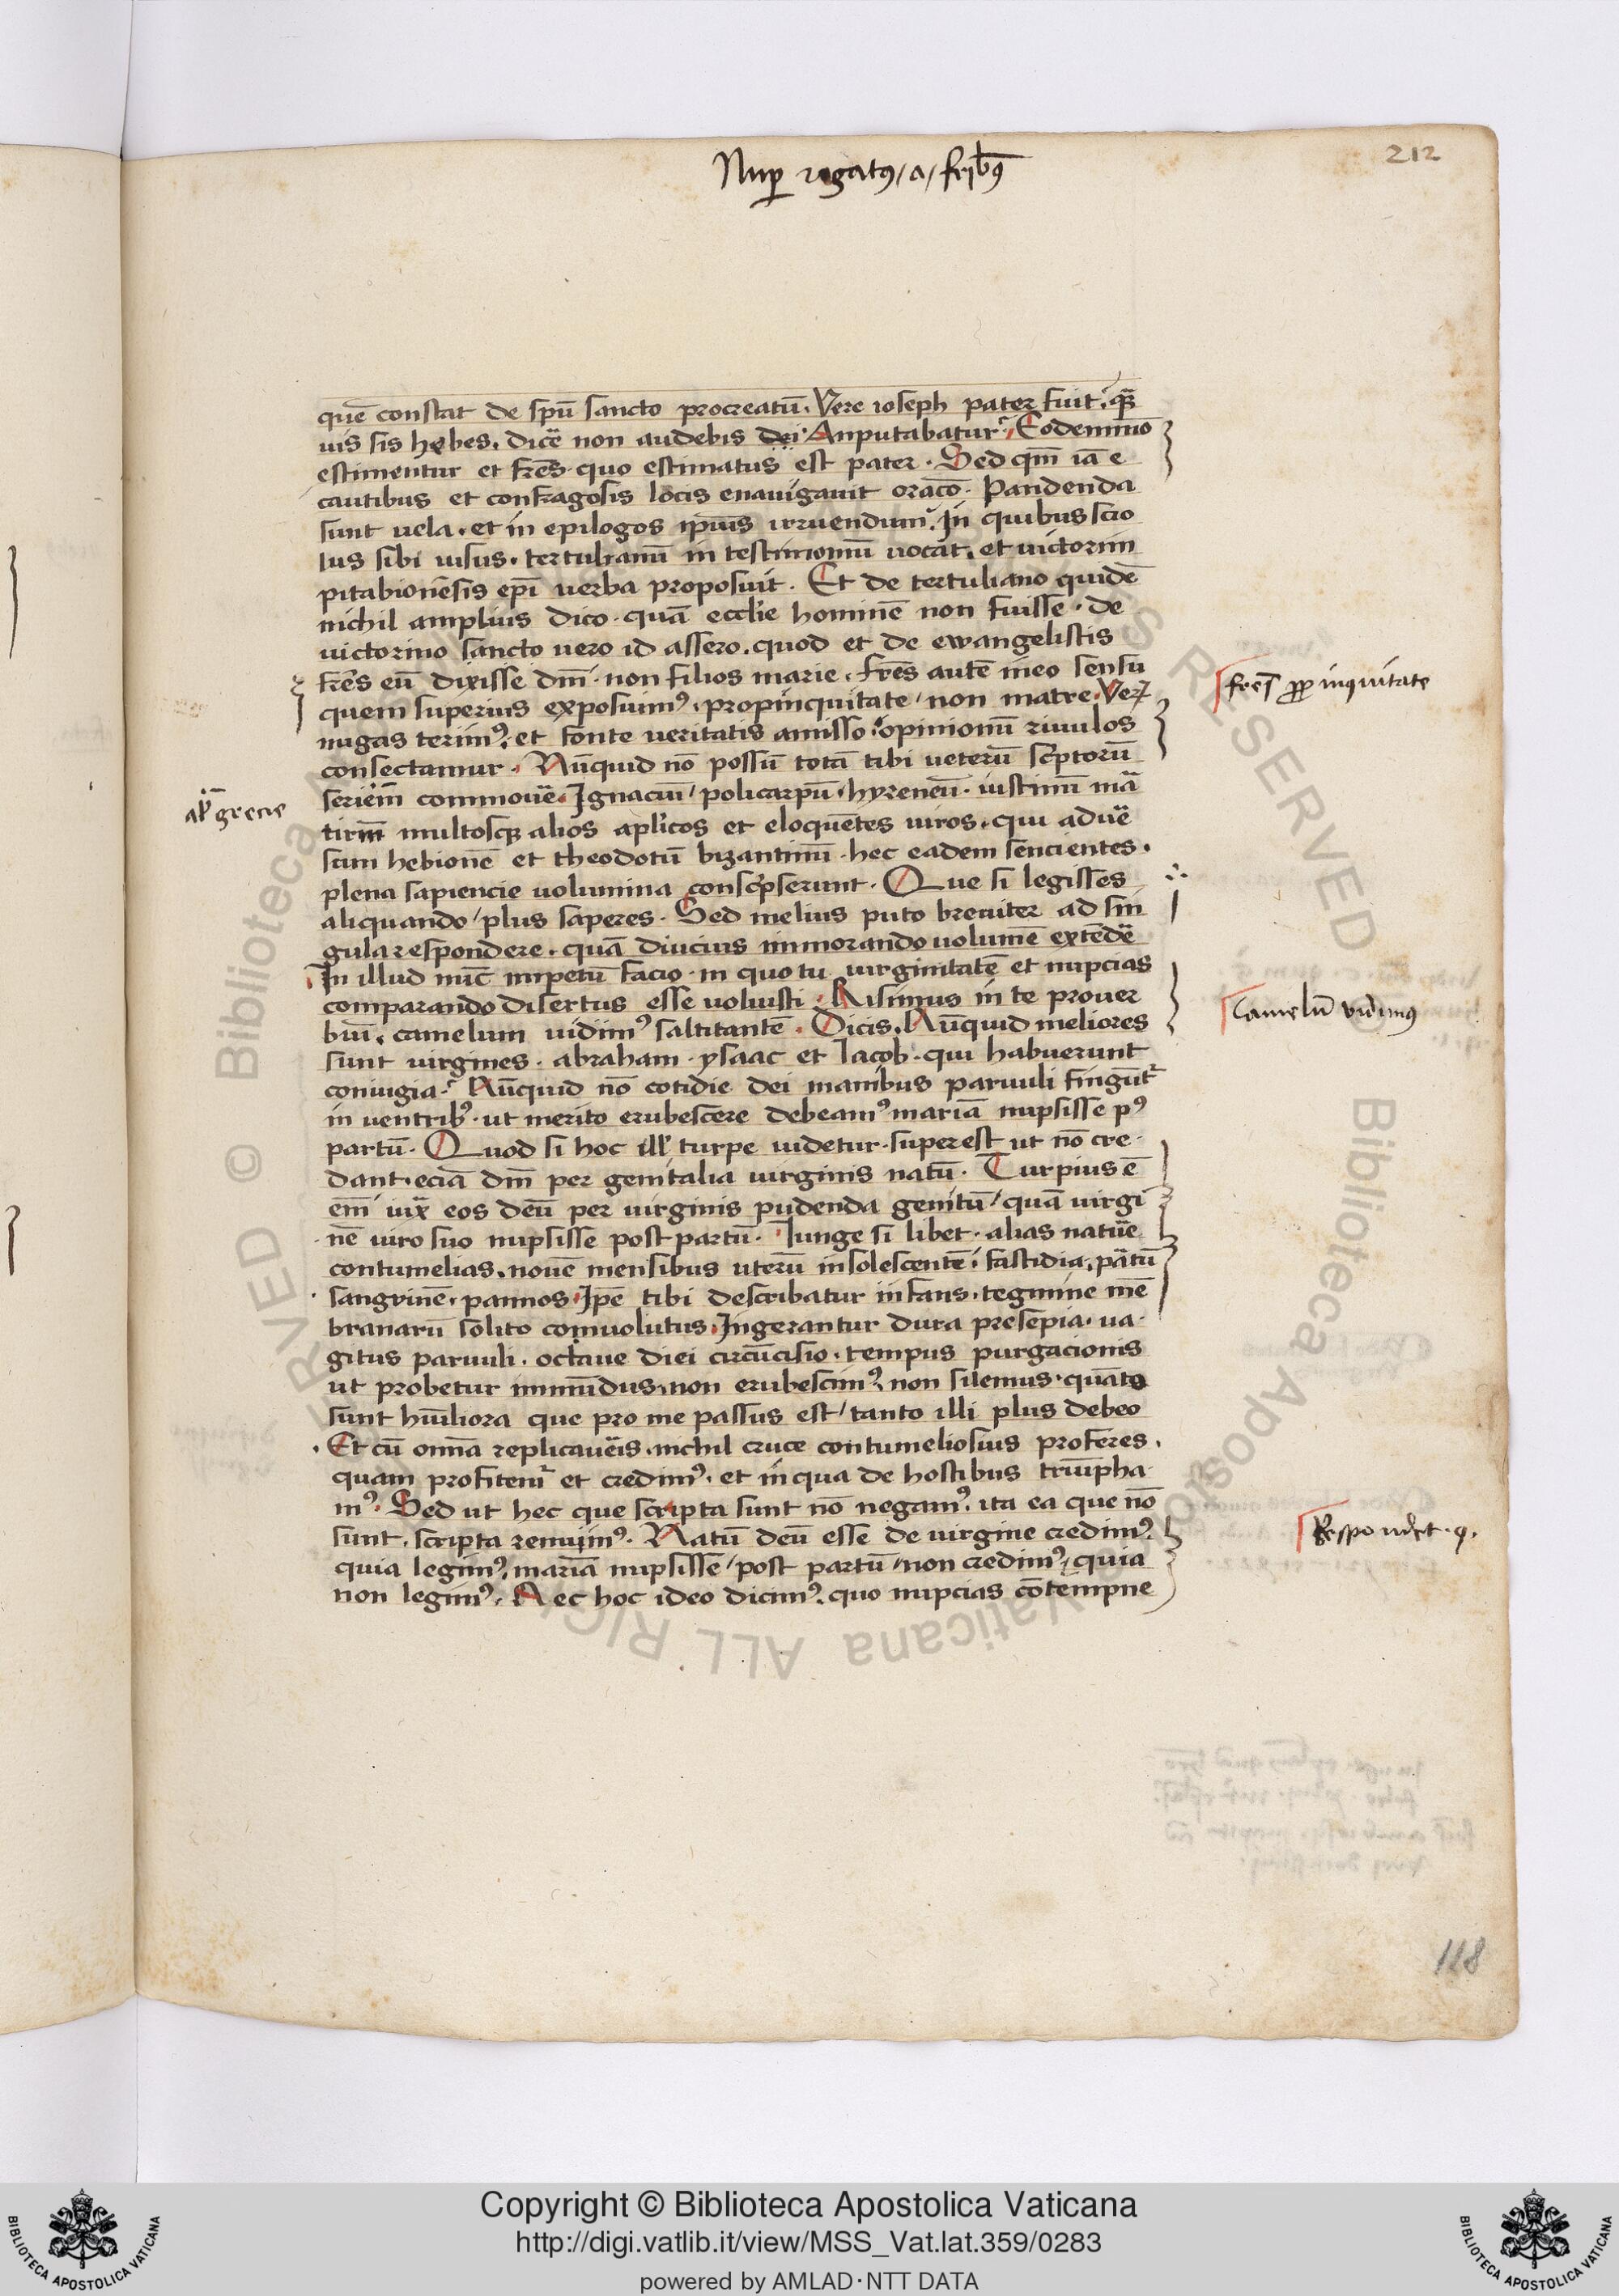 212
Nup rogatꝰ/a/fribꝰ
quē constat de spū sancto procreatū. Vere ioseph pater fuit. quā
uis sis hebes. dicē non audebis dei. An putabatur? Eodem mō
estimentur et frēs. quo estimatus est pater. Sed qm̄ iā e
cautibus et confragosis locis enauigauit oracō. Pandenda
sunt uela. et in epilogos ipsius irruendum. In quibus scio
lus sibi uisus. tertulianū in testimoniū uocat. et uictorini
pitabionēsis epī uerba proposuit. Et de tertuliano quidē
nichil amplius dico. quā eccl'ie hominē non fuisse. de
uictorino sancto uero id assero. quod et de ewangelistis
frēs eū dixisse dm̄. non filios marie. frēs autē in eo sensu
quem superius exposuimꝰ. propinquitate/ non matre. Verꝝ
nugas terimꝰ. et fonte ueritatis amisso. opinionū riuulos
consectamur. Nūquid nō possū totā tibi ueterū sc'ptorū
seriem commouē. Ignaciū/ policarpū. hyreneū. iustinū mā
tirm multosqꝫ alios apl'icos et eloquētes uiros. qui aduē
sum hebionē et theodotū bizantinū. hec eadem sencientes.
plena sapiencie uolumina consc'pserunt. Que si legisses
aliquando/ plus saperes. Sed melius puto breuiter ad sin
gula respondere. quā diucius immorando uolumē extēdē
In illud nūc impetū facio. in quo tu uirginitatē et nupcias
comparando disertus esse uoluisti. Risimus in te prouer
biū. camelum uidimꝰ saltitantē. Dicis. Nūquid meliores
sunt uirgines. abraham. ysaac et Iacob. qui habuerunt
coniugia? Nūquid nō cotidie dei manibus paruuli fingūtʳ
in uentribꝰ. ut merito erubescere debeamꝰ mariā nupsisse pꝰ
partū. Quod si hoc ill' turpe uidetur. superest ut nō cre
dant. eciā dm̄ per genitalia uirginis natū. Turpius ē
em̄ iux̄ eos deū per uirginis pudenda genitū/ quā uirgi
nē uiro suo nupsisse post partū. Iunge si libet. alias natūe
contumelias. nouē mensibus uterū insolescentē. fastidia. pātū
sangvinē. pannos. Ipē tibi describatur infans. tegmine mē
branarū solito conuolutus. Ingerantur dura presepia. ua
gitus paruuli. octaue diei circūcisio. tempus purgacionis
ut probetur inmūdus. non erubescimꝰ. non silemus. quāto
sunt hūiliora que pro me passus est/ tanto illi plus debeo
Et cū omīa replicauēis. nichil cruce contumeliosius proferes.
quam profitemʳ et credimꝰ. et in qua de hostibus triūpha
mꝰ. Sed ut hec que scripta sunt nō negamꝰ. ita ea que nō
sunt scripta renuimꝰ. Natū deū esse de uirgine credimꝰ.
quia legimꝰ. mariā nupsisse/ post partū/ non credimꝰ. quia
non legimꝰ. Nec hoc ideo dicimꝰ. quo nupcias cōtempne
frēs ꝓpinquitate
grecie
Camelū vidimꝰ
Respondet. q.
118
Copyright © Biblioteca Apostolica Vaticana
http://digi.vatlib.it/view/MSS_Vat.lat.359/0283
powered by AMLAD·NTT DATA
BIBLIOTECA APOSTOLICA VATICANA
BIBLIOTECA APOSTOLICA VATICANA